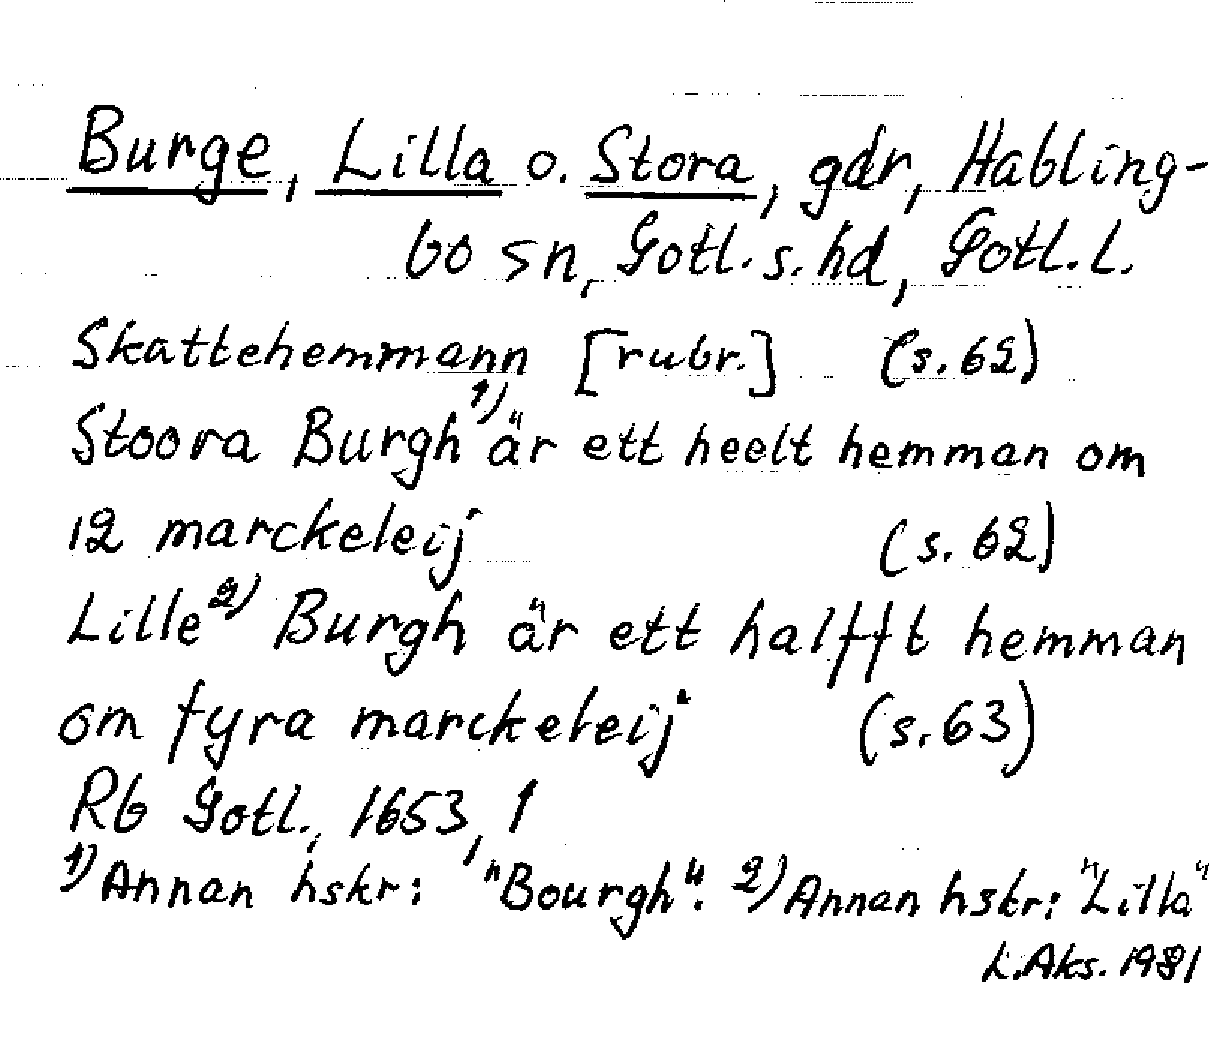 Burge, Lilla o. Stora, gdr, Habling-
bo sn, Gotl. s. hd, Gotl. L.
Skattehemmann [rubr.] (s. 62)
Stoora Burgh 1) är ett heelt hemman om
12 marckeleij (s. 62)
Lille 2) Burgh är ett halfft hemman
om fyra marckeleij (s. 63)
Rb Gotl., 1653, 1
1) Annan hskr: "Bourgh". 2) Annan hskr: "Lilla"
L. Aks. 1981